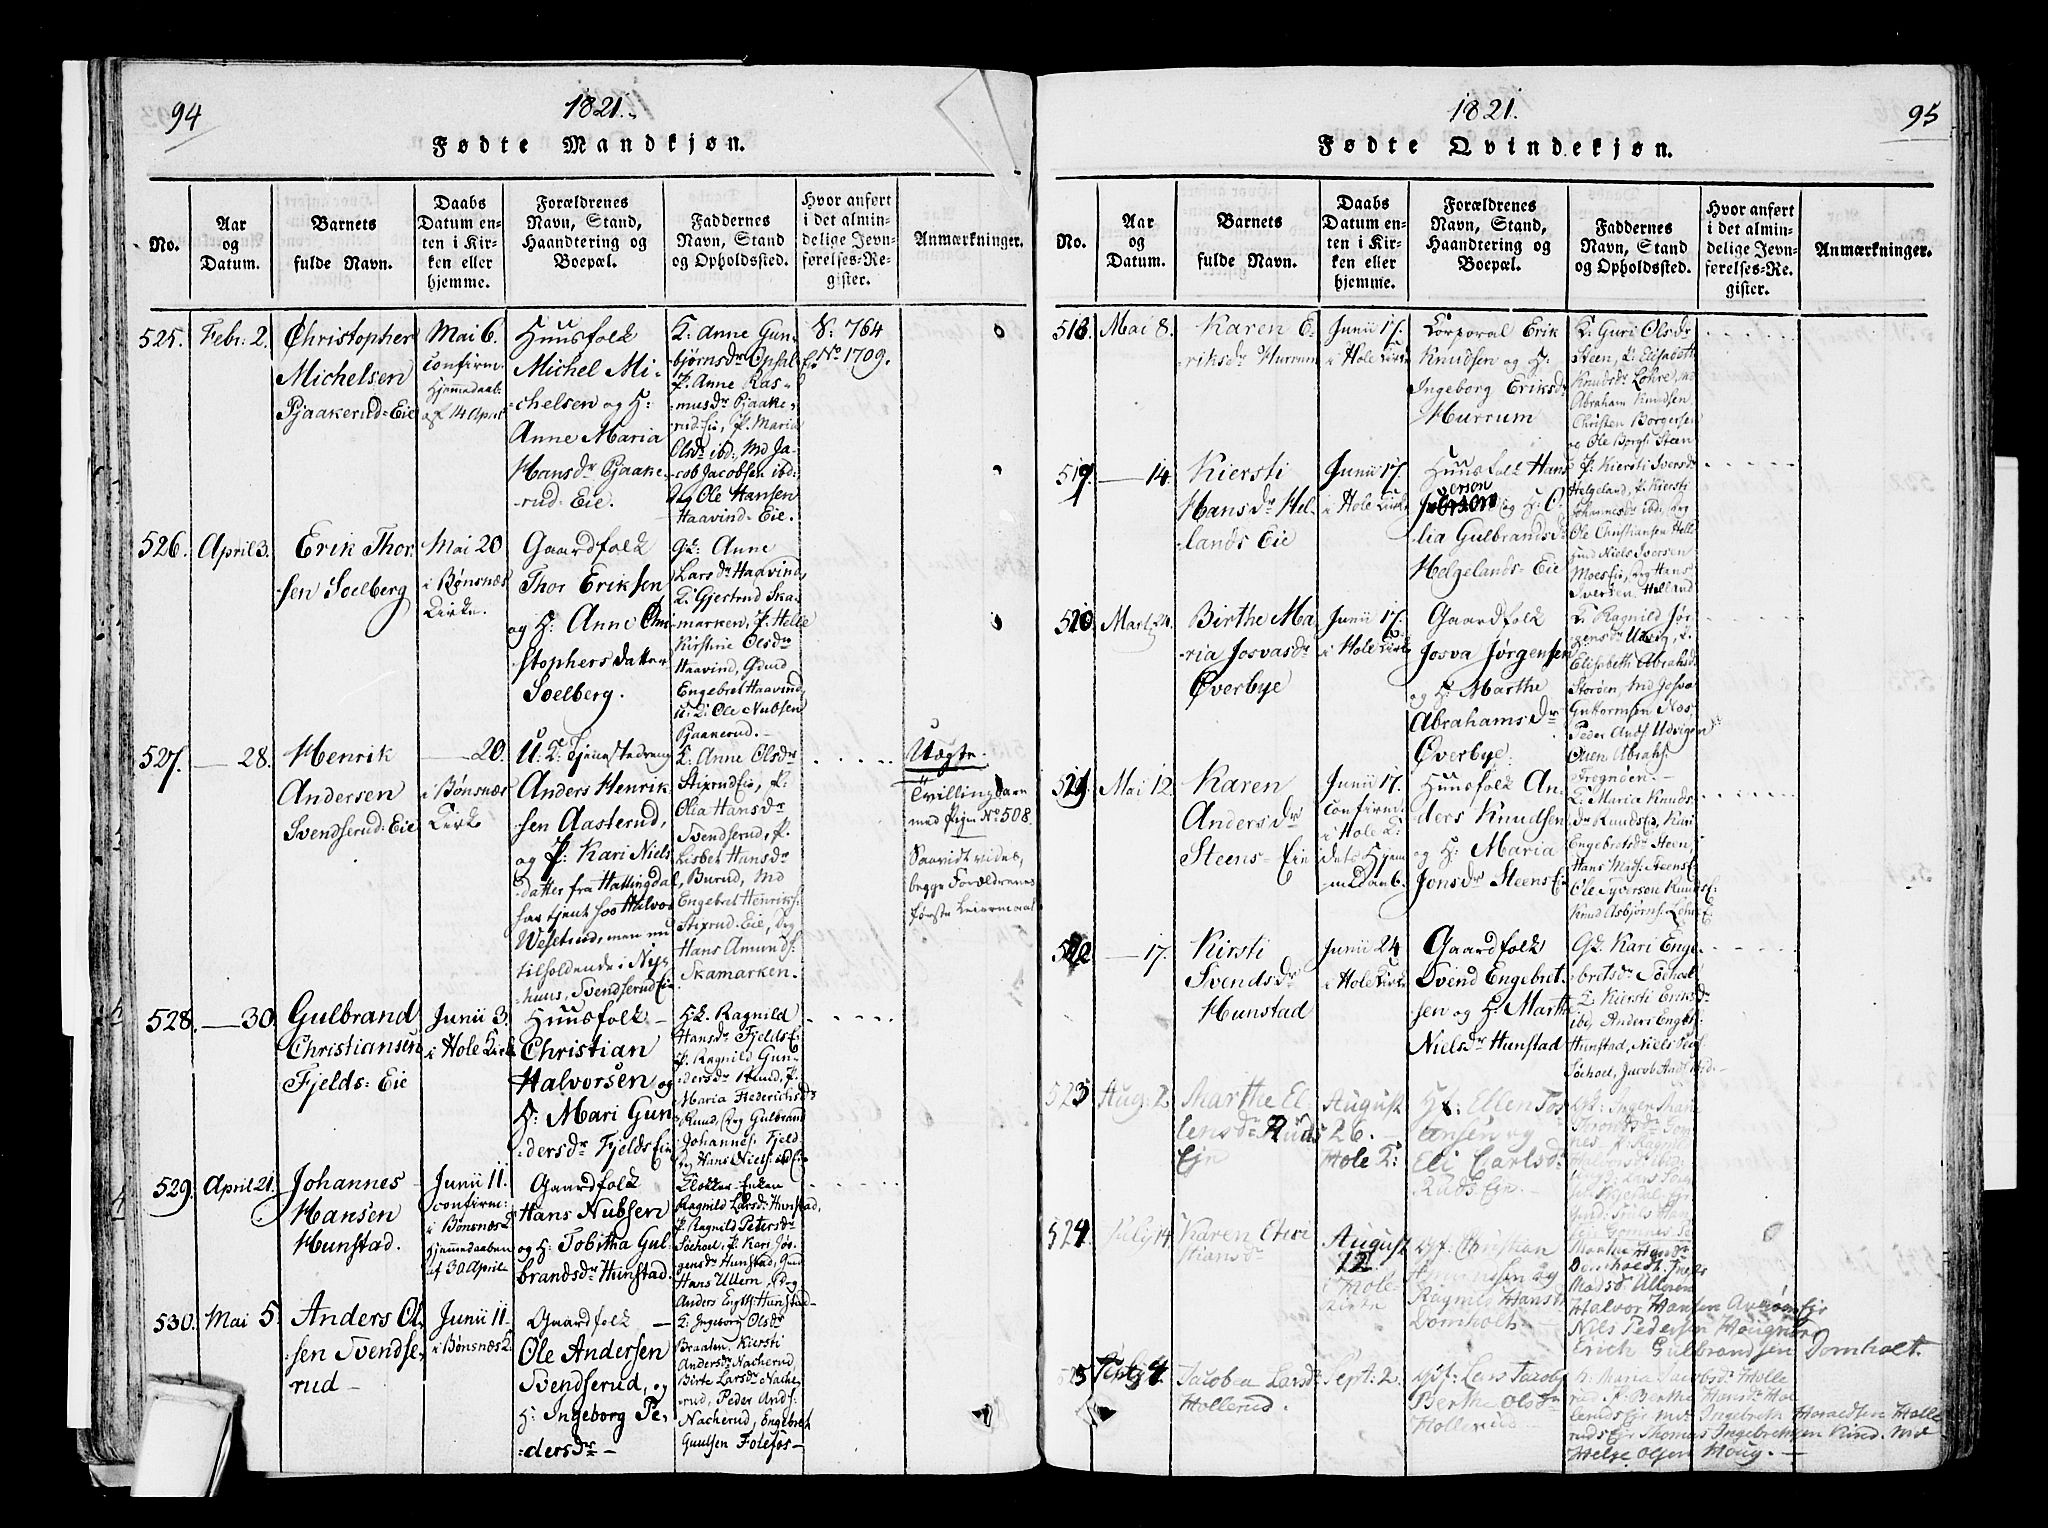 94
1821.
Fødte Mandkjøn.
No.
Aar
og
Datum.
Barnets
fulde Navn.
Daabs
Datum en-
ten i Kir-
ken eller
hjemme.
Forældrenes
Navn, Stand,
Haandtering og
Boepæl.
Faddernes
Navn, Stand
og Opholdssted.
Hvor anført
i det almin-
delige Jevn-
førelses-Re-
gister.
Anmærkninger.
525.
Febr: 2.
Christopher
Michelsen
Pjaakerud-Eie
Mai 6.
confirm.
Hjemmedaab
af 14 April
Huusfolk
Michel Mi-
chelsen og H:
Anne Maria
Hansdr Pjaake-
rud-Eie.
K: Anne Gun-
bjørnsdr Opsal
P. Anne Ras-
musdr Pjaake-
rud-Eie, P. Maria
Olsdr ibd: Md Ja-
cob Jacobsen ibd:
og Ole Hansen
Haavind-Eie.
S: 764
No 1709.
526.
April 3.
Erik Thor
sen Soelberg
Mai 20
i Bønsnæs
Kirke.
Gaardfolk
Thor Eriksen
og H: Anne Chri
stophersdatter
Soelberg.
Gk: Anne
Larsdr Haavind,
K: Gjertrud Ska-
marken, P. Helle
Kirstine Olsdr
Haavind, Gmd
Engebret Haavind,
u: K: Ole Nubsen
Pjaakerud.
527.
— 28.
Henrik
Andersen
Svendserud-Eie
— 20.
i Bønsnæs
Kirke
U: K: Tjenestedreng
Anders Henrik
sen Aasterud,
og P: Kari Niels
datter fra Hallingdal,
har tjent hos Halvor
Wesetrud, men nu
tilholdende i Nye
huus, Svendserud Eie
K: Anne Olsdr
Stixrud Eie, P.
Olia Hansdr
Svendserud, P.
Lisbet Hansdr
Burud, Md
Engebret Henriks:
Stixrud-Eie, Dg
Hans Amunds:
Skamarken.
Uægte.
Tvillingbarn
med Pigen No 508.
Saavidt vides,
begge Forældrenes
første Leiermaal
528.
— 30.
Gulbrand
Christiansen
Fjelds-Eie
Junii 3.
i Hole Kirke
Huusfolk
Christian
Halvorsen og
H: Mari Gun
dersdr Fjelds Eie
Hk. Ragnild
Hansdr Fjelds E:
P. Ragnild Gun-
dersdr Rund, P.
Maria Frederichsdr
Rund, Dg Gulbrand
Johannes: Fjeld
Dg Hans Niels: ibd
529.
April 21.
Johannes
Hansen
Hunstad.
Junii 11.
confirm:
i Bønsnæs K:
Hjemmedaaben
af 30 April
Gaardfolk
Hans Nubsen
og H: Tobitha Gul-
brandsdr Hunstad.
Klokker-Enken
Ragnild Larsdr Hunstad,
P. Ragnild Petersdr
Søehoel, P. Kari Jør-
gensdr Hunstad, Gmd
Hans Ullern, Dg
Anders Engebr: Hunstad
530.
Mai 5
Anders Ol
sen Svendse-
rud
Junii 11.
i Bønsnæs K.
Gaardfolk
Ole Andersen
Svendserud, og
H: Ingeborg Pe-
dersdr
K: Ingeborg Olsdr
Braaten, Kiersti
Andersdr Nacherud
Birte Larsdr Nache
rud, Peder Ands:
Nacherud, Engebret
Guulsen Folefos
1821.
95
Fødte Qvindekjøn.
No.
Aar
og
Datum.
Barnets
fulde Navn.
Daabs
Datum en-
ten i Kir-
ken eller
hjemme.
Forældrenes
Navn, Stand,
Haandtering og
Boepæl.
Faddernes
Navn, Stand
og Opholdssted.
Hvor anført
i det almin-
delige Jevn-
førelses-Re-
gister.
Anmærkninger.
518.
Mai 8.
Karen E-
riksdr Hurrum
Junii 17.
i Hole Kirke
Corporal Erik
Knudsen og H:
Ingeborg Eriksdr
Hurrum
K: Guri Olsdr
Steen, K: Elisabeth
Knudsdr Lohre, Md
Abraham Knudsen,
Christen Borgersen
og Ole Borgs: Steen
519
— 14.
Kiersti
Hansdr Hel
lands Eie
Junii 17.
i Hole Kirke
Huusfolk Hans
Iverson og H: O
lia Gulbrandsdr
Helgelands-Eie
P: Kiersti Iversdr
Helgeland, P. Kiersti
Johannesdr ibd, Dg
Ole Christiansen Helle
Niels Iversen
Moes Eie, Dg Hans
Iversen Helland
520
Martz 24.
Birthe Ma
ria Josvasdr
Øverbye
Junii 17.
i Hole Kirke
Gaardfolk
Josva Jørgensen
og H: Marthe
Abrahamsdr
Øverbye.
K: Ragnild Jør
gensdr Udvig, K.
Elisabeth Abrahsdr
Storøen, Md Josva
Guttormsen Næs
Peder Ands: Udvigen
Oven Abrahs:
Frognøen.
521
Mai 12.
Karen
Andersdr
Steens-Eie
Junii 17.
confirm.
i Hole K:
dets Hjem
medaab.
Huusfolk An-
ders Knudsen
og H: Maria
Jonsdr Steens Eie
K: Maria Knuds
dr Runds E, Kari
Engebretsdr Steen,
Hans Mads: Steens E
Ole Syverson Runds E:
Knud Asbjørns. Lohre E:
522
— 17.
Kirsti
Svendsdr
Hunstad
Junii 24
i Hole Kirke
Gaardfolk
Svend Engebret
sen og H: Marthe
Nielsdr Hunstad
Gk. Kari Enge
bretsdr Søehol
K. Kirsti Eriksdr
ibd, Anders Engbs:
Hunstad, Niels
Søehoel, Jacob Ands: ibd.
523
Aug: 2.
Marthe El
lensdr Ruds
Eje
August
26.
Hole K:
Hf: Ellen Tos
tensen og
Eli Carlsdr
Ruds Eje.
524
July 14
Karen Chri
stiansdr
August
12.
i Hole
Kirke
Hf. Christian
Ragnild Hansdr
Domholt
Marthe Hansdr
Domholdt.
Madsdr Ullern
Halvor Hansen
Nils Pedersen
Erich Gulbrandsen Domholt.
July 4.
Jacobea Larsdr
Hollerud.
Sept: 2.
Hf: Lars Jacobs
Berthe Olsdr
Hollerud
K: Maria Jacobsdr Holle
rud P. Berthe Hansdr Hol
leruds Eje Md Ingebreth Haraldsen Holle
ruds Eje Thomas Ingebrethsen Rund. Md
Helge Olsen Houg.